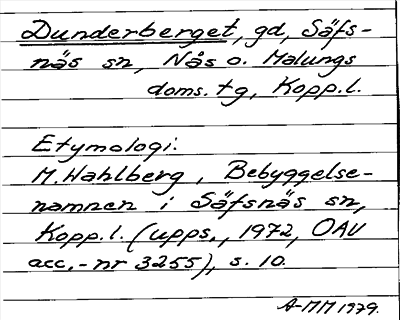 Dunderberget, gd, Säfs-
näs sn, Nås o. Malungs
doms. tg, Kopp. l.
Etymologi:
M. Wahlberg, Bebyggelse-
namnen i Säfsnäs sn,
Kopp. l. (upps., 1972, OAU
acc.-nr 3255), s. 10.
A-MM 1979.